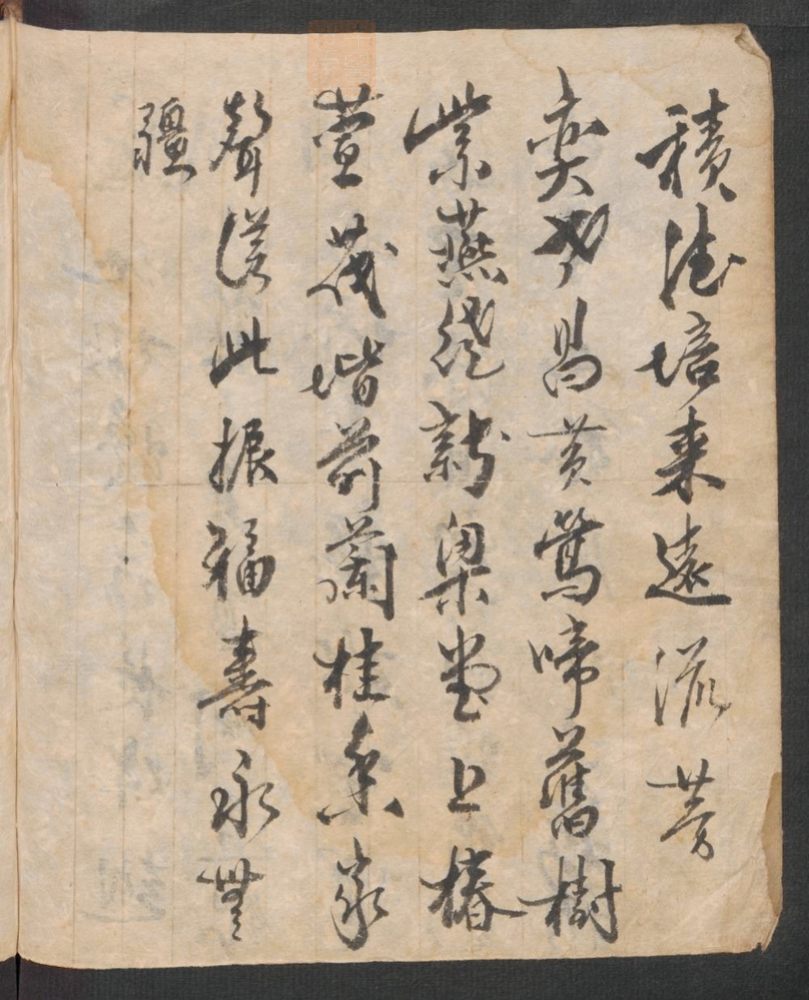 積德培来遠流芳
奕世昌黃鶯啼舊樹
紫燕繞新梁堂上椿
萱茂堦前蘭桂香家
聲從此振福壽永無
疆